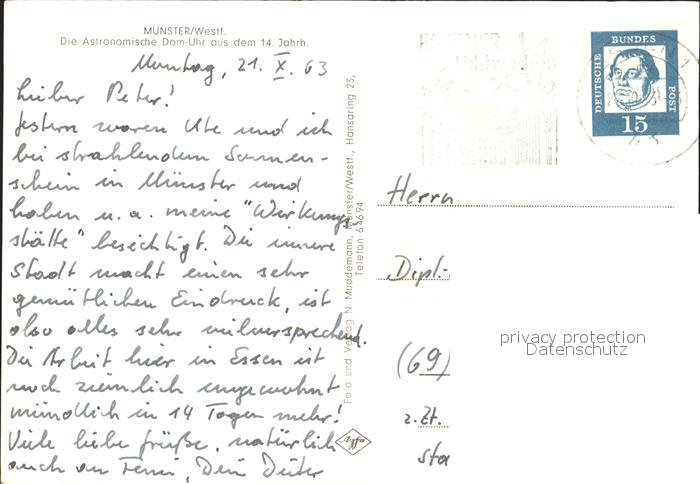 MÜNSTER/Westf.
Die Astronomische Dom-Uhr aus dem 14. Jahrh.
Montag, 21. X. 63
Lieber Peter!
Gestern waren Ute und ich
bei strahlendem Sonnen-
schein in Münster und
haben u. a. meine "Wirkungs-
stätte" besichtigt. Die innere
Stadt macht einen sehr
gemütlichen Eindruck, ist
also alles sehr vielversprechend.
Die Arbeit hier in Essen ist
noch ziemlich ungewohnt
mündlich in 14 Tagen mehr!
Viele liebe Grüße, natürlich
auch an Dein Dieter
Foto und Verlag N. Muddemann, Münster/Westf., Hansaring 23,
Telefon 64694
Agfa
DEUTSCHE
BUNDES
POST
15
Herrn
Dipl.-
(69)
z. Zt.
Sta
privacy protection
Datenschutz